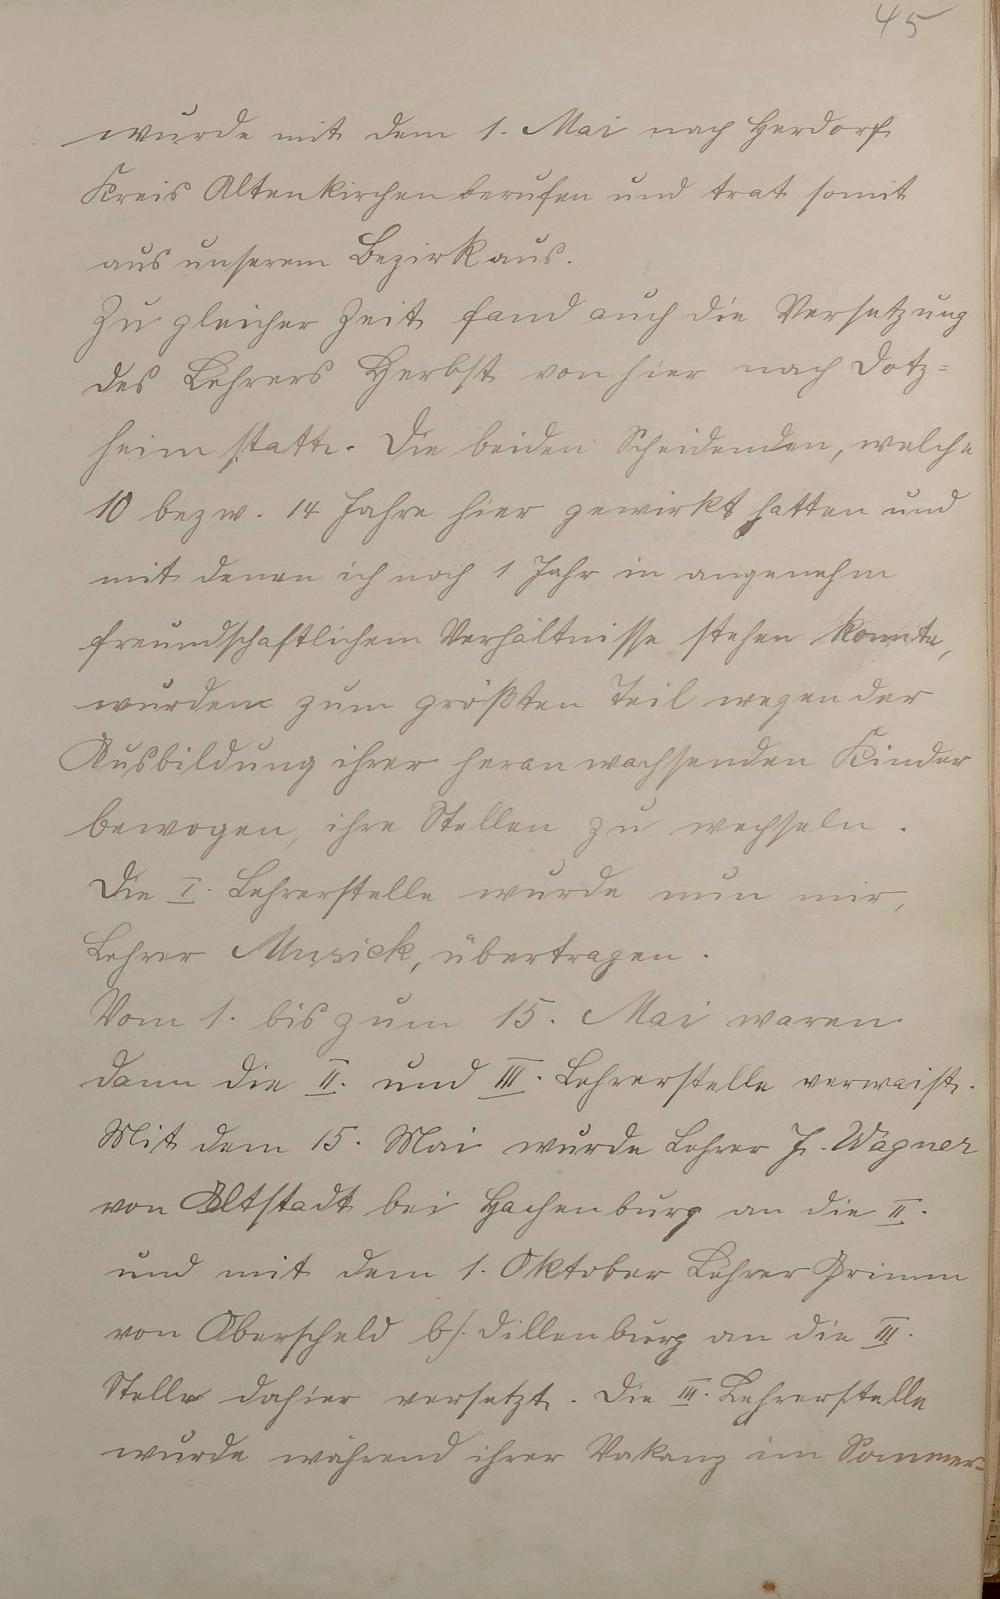 45
wurde mit dem 1. Mai nach Herdorf
Kreis Altenkirchen berufen und trat somit
aus unserem Bezirk aus.
Zu gleicher Zeit fand auch die Versetzung
des Lehrers Herbst von hier nach Dotz=
heim statt. Die beiden Scheidenden, welche
10 bezw. 14 Jahre hier gewirkt hatten und
mit denen ich noch 1 Jahr in angenehm
freundschaftlichem Verhältnisse stehen konnte,
wurden zum größten Teil wegen der
Ausbildung ihrer heranwachsenden Kinder
bewogen, ihre Stellen zu wechseln.
Die I. Lehrerstelle wurde nun mir,
Lehrer Musick, übertragen.
Vom 1. bis zum 15. Mai waren
dann die II. und III. Lehrerstelle verwaist.
Mit dem 15. Mai wurde Lehrer J. Wagner
von Altstadt bei Hachenburg an die II.
und mit dem 1. Oktober Lehrer Grimm
von Oberscheld b/. Dillenburg an die III.
Stelle dahier versetzt. Die III. Lehrerstelle
wurde während ihrer Vakanz im Sommer=